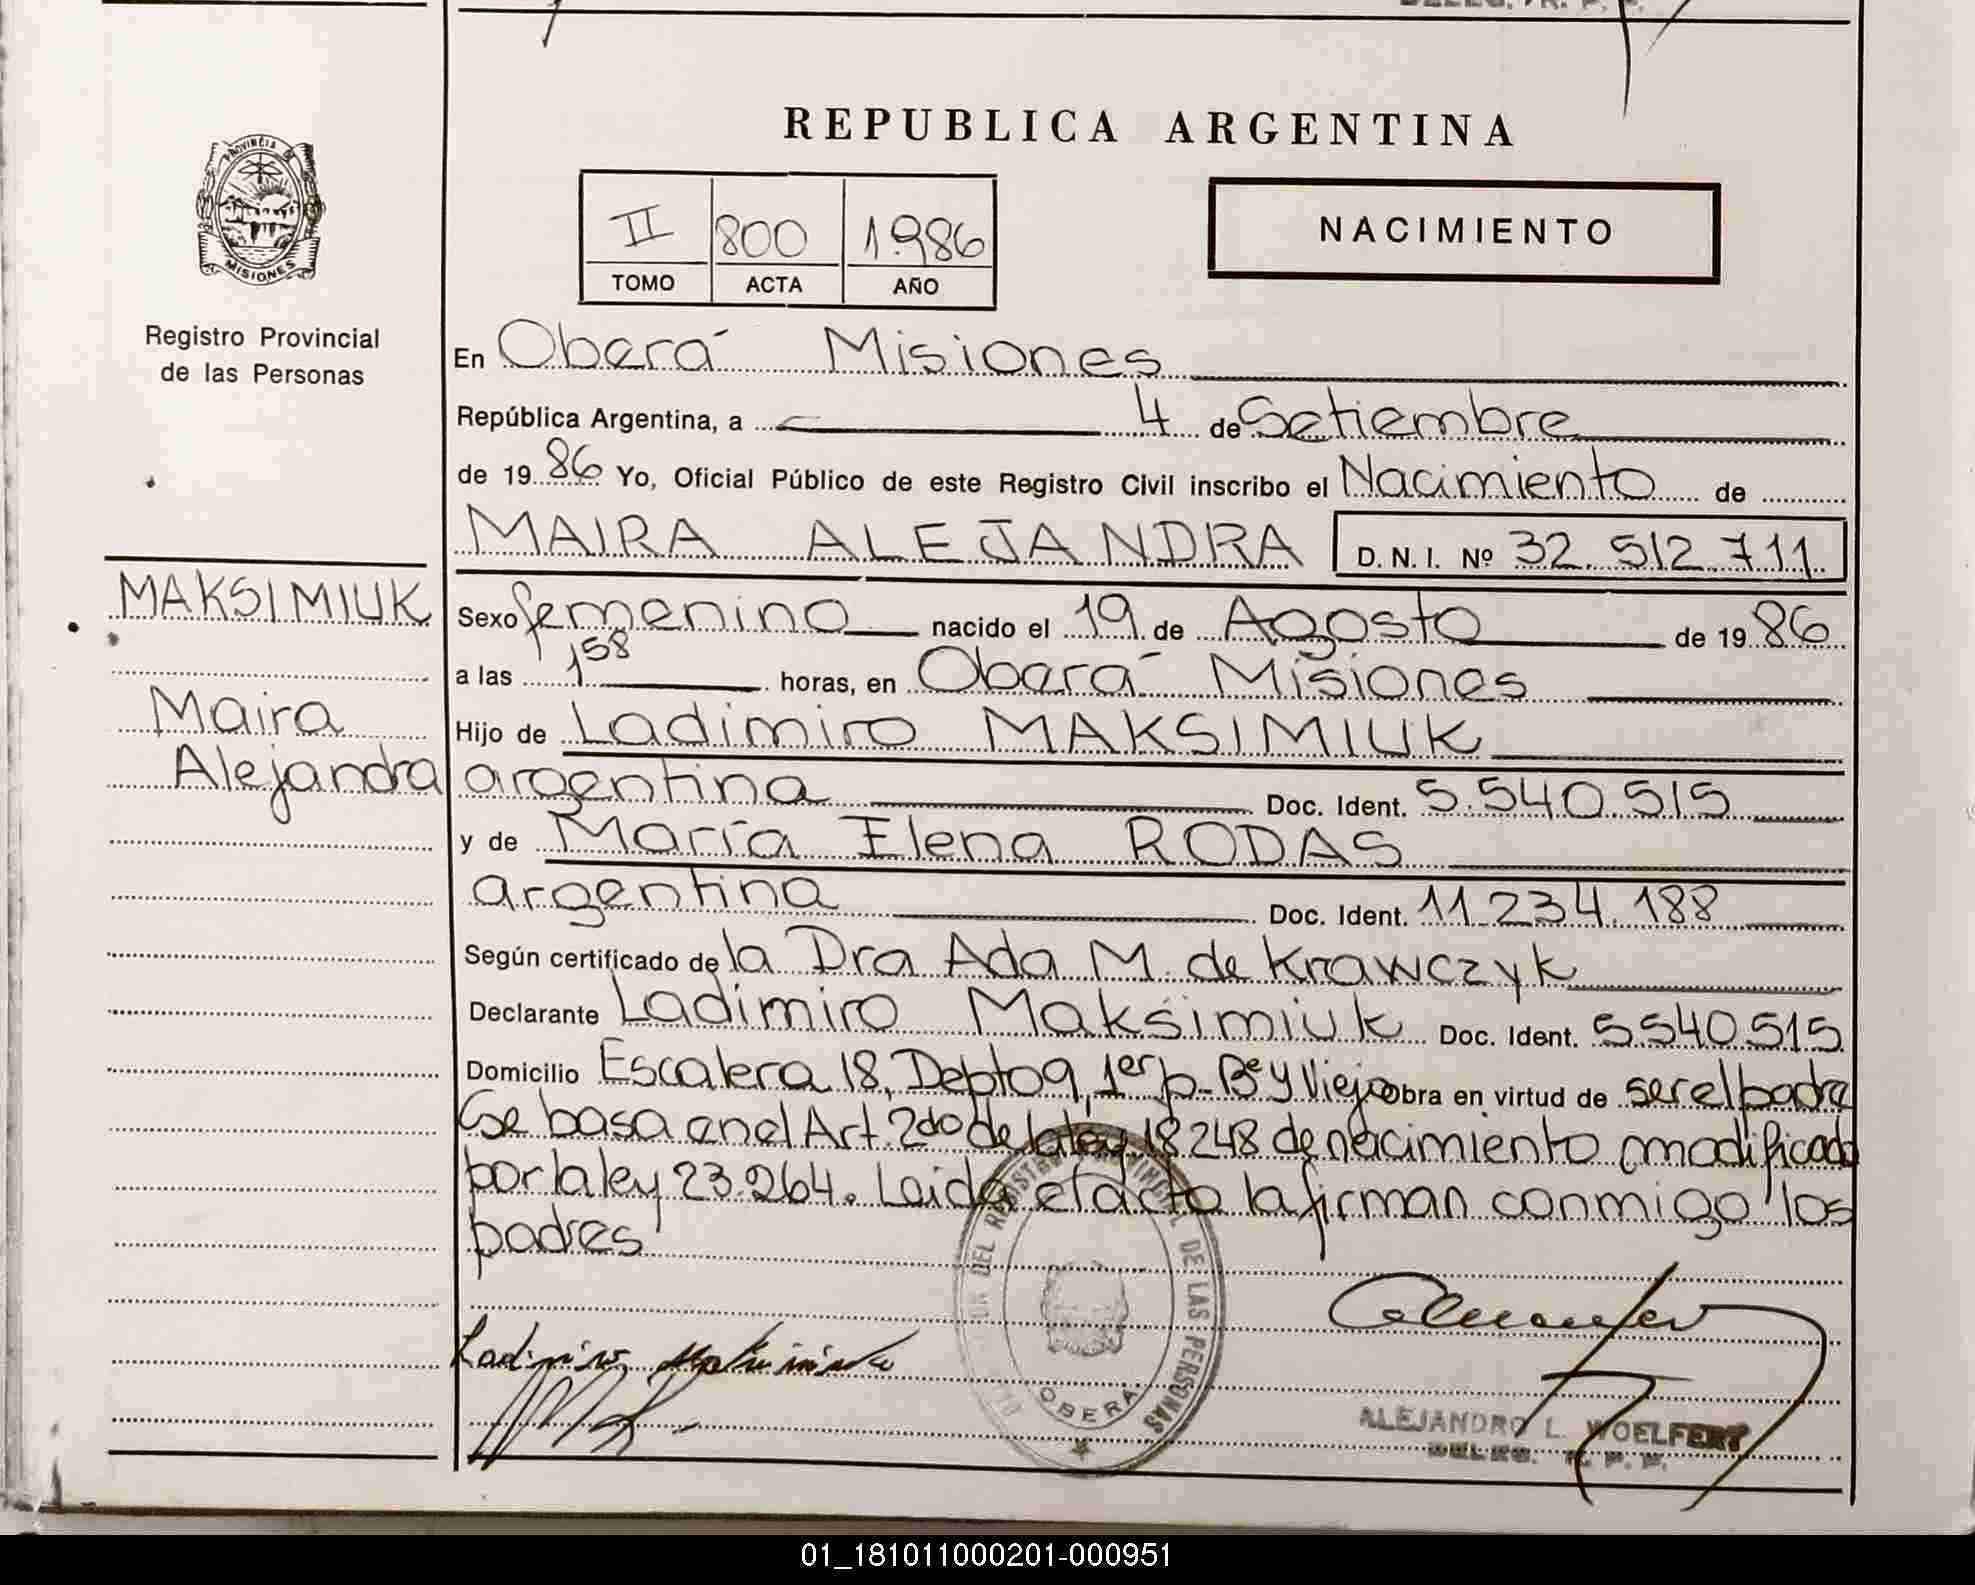 DELEG. R. P. P.
REPUBLICA ARGENTINA
PROVINCIA DE
MISIONES
II 800 1.986
TOMO ACTA AÑO
NACIMIENTO
Registro Provincial
de las Personas
En Oberá Misiones
República Argentina, a 4 de Setiembre
de 19 86 Yo, Oficial Público de este Registro Civil inscribo el Nacimiento de
MAIRA ALEJANDRA D. N. I. Nº 32.512.711
MAKSIMIUK
Sexo femenino nacido el 19 de Agosto de 19 86
a las 1 58 horas, en Oberá Misiones
Maira
Hijo de Ladimiro MAKSIMIUK
Alejandra
argentina Doc. Ident. 5.540.515
y de María Elena RODAS
argentina Doc. Ident. 11.234.188
Según certificado de la Dra Ada M. de Krawczyk
Declarante Ladimiro Maksimiuk Doc. Ident. 5.540.515
Domicilio Escalera 18, Depto 9, 1er p- Bº Y Viejo obra en virtud de ser el padre
Se basa en el Art. 2do de la ley 18248 de nacimiento modificado
por la ley 23.264. Leida el acta la firman conmigo los
padres
DEL REGISTRO PROVINCIAL DE LAS PERSONAS
OBERÁ
Ladimiro Maksimiuk
ALEJANDRO L. WOELFERT
DELEG. R. P. P.
01_181011000201-000951